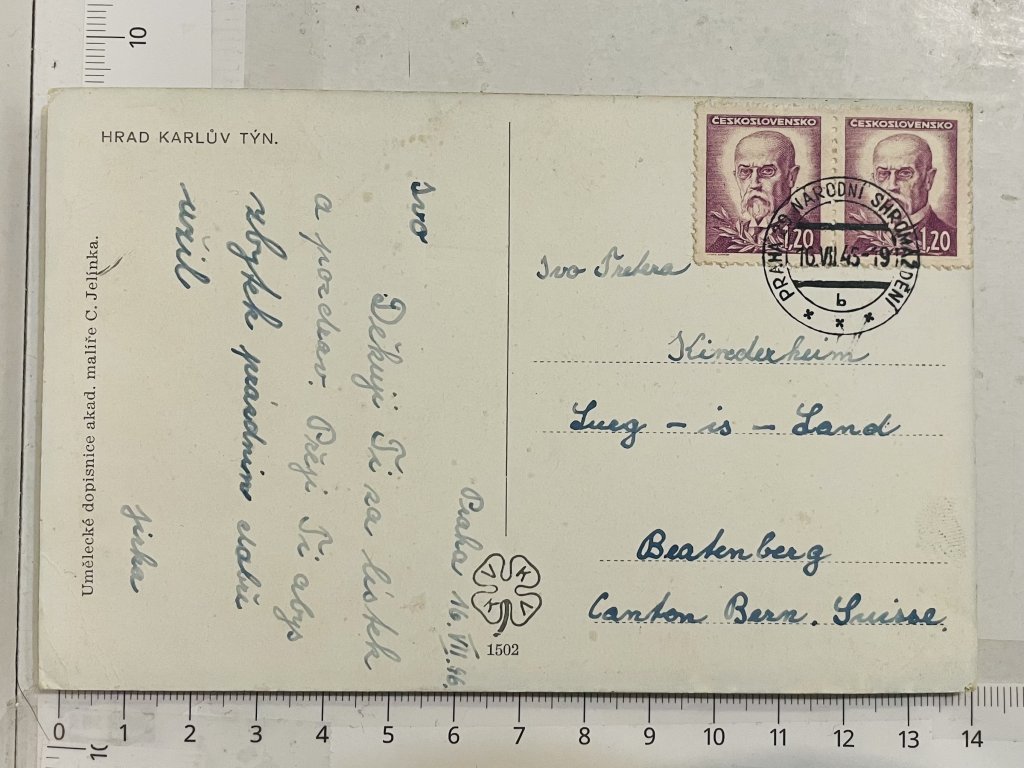 HRAD KARLŮV TÝN.
Umělecké dopisnice akad. malíře C. Jelínka.
Praha 16. VII. 46.
Ivo
Děkuji Ti za lístek
a pozdrav. Přeji Ti abys
zbytek prázdnin dobře
užil
Jirka
1502
VKVK
ČESKOSLOVENSKO
1,20
ČESKOSLOVENSKO
1,20
PRAHA 29 NÁRODNÍ SHROMÁŽDĚNÍ
16.VII.46-19
b
Ivo
Kinderheim
Lueg - is - Land
Beatenberg
Canton Bern. Suisse.
10
0 1 2 3 4 5 6 7 8 9 10 11 12 13 14
10